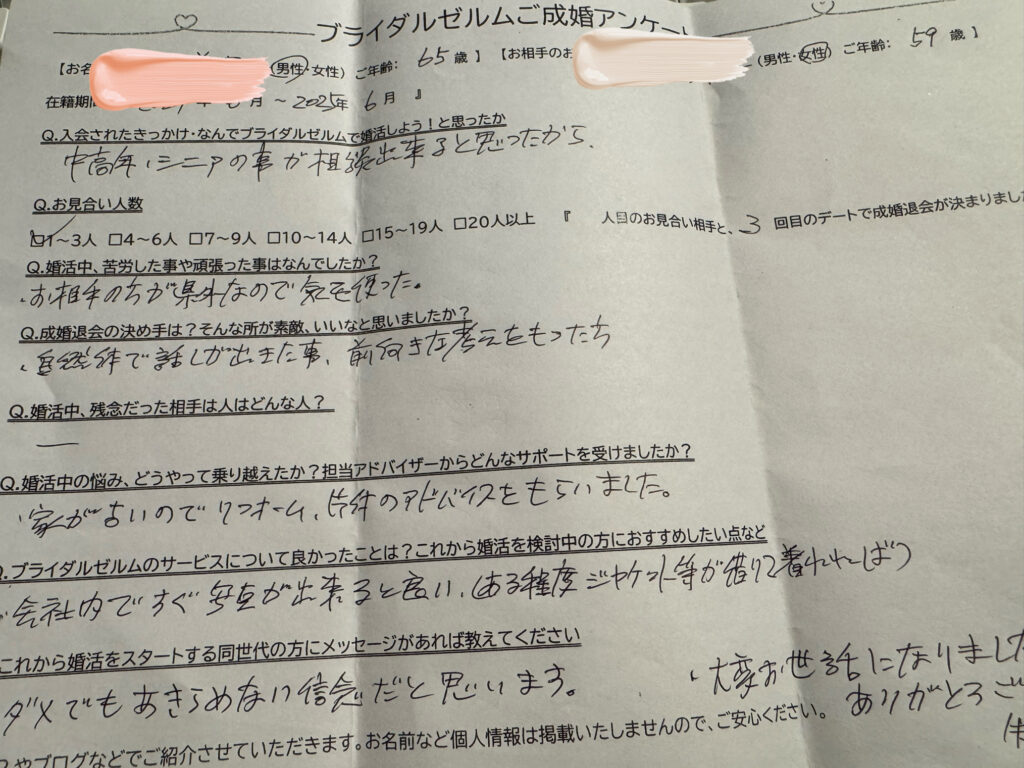 ブライダルゼルムご成婚アンケート
【お名 (男性・女性) ご年齢: 65 歳 】 【お相手のお (男性・女性) ご年齢: 59 歳 】
在籍期間 年 月 ~ 2025年 6 月 』
Q.入会されたきっかけ・なんでブライダルゼルムで婚活しよう!と思ったか
中高年、シニアの事が相談出来ると思ったから、
Q.お見合い人数
☑1~3人 □4~6人 □7~9人 □10~14人 □15~19人 □20人以上 『 人目のお見合い相手と、3 回目のデートで成婚退会が決まりました
Q.婚活中、苦労した事や頑張った事はなんでしたか?
、お相手の方が県外なので気を使った。
Q.成婚退会の決め手は?そんな所が素敵、いいなと思いましたか?
、自然体で話しが出きた事、前向きな考えをもった方
Q.婚活中、残念だった相手は人はどんな人?
―
Q.婚活中の悩み、どうやって乗り越えたか?担当アドバイザーからどんなサポートを受けましたか?
、家が古いのでリフォーム、片件のアドバイスをもらいました。
Q.ブライダルゼルムのサービスについて良かったことは?これから婚活を検討中の方におすすめしたい点など
会社内ですぐ写真が出来ると良い、(ある程度ジャケット等が借りて着れれば)
これから婚活をスタートする同世代の方にメッセージがあれば教えてください
ダメでもあきらめない信念だと思います。
、大変お世話になりました
ありがとうご
スやブログなどでご紹介させていただきます。お名前など個人情報は掲載いたしませんので、ご安心ください。